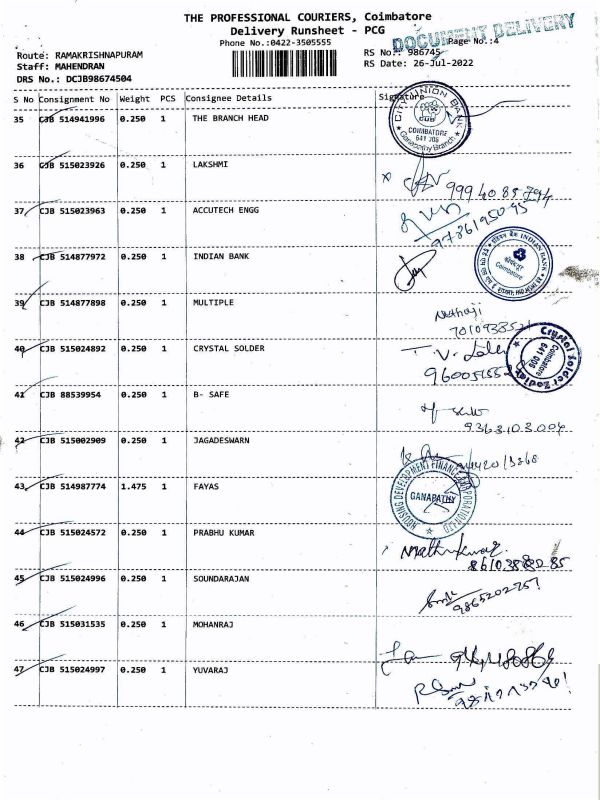 THE PROFESSIONAL COURIERS, Coimbatore
Delivery Runsheet - PCG
DOCUMENT DELIVERY
Phone No.:0422-3505555
Page No.:4
Route: RAMAKRISHNAPURAM
RS No.: 986745
Staff: MAHENDRAN
RS Date: 26-Jul-2022
DRS No.: DCJB98674504
S No Consignment No Weight PCS Consignee Details Signature
35 CJB 514941996 0.250 1 THE BRANCH HEAD
CITY UNION BANK
CUB
COIMBATORE
641 006
Ganapathy Branch
36 CJB 515023926 0.250 1 LAKSHMI
99940 85794
37 CJB 515023963 0.250 1 ACCUTECH ENGG
9786195045
38 CJB 514877972 0.250 1 INDIAN BANK
इंडियन बैंक INDIAN BANK
Coimbatore
39 CJB 514877898 0.250 1 MULTIPLE
40 CJB 515024892 0.250 1 CRYSTAL SOLDER
T. V.
Crystal Solder Zodiac
Coimbatore
641 006
41 CJB 88539954 0.250 1 B- SAFE
9363103004
42 CJB 515002909 0.250 1 JAGADESWARN
43 CJB 514987774 1.475 1 FAYAS
HOUSING DEVELOPMENT FINANCE CORPORATION LTD
GANAPATHY
44 CJB 515024572 0.250 1 PRABHU KUMAR
45 CJB 515024996 0.250 1 SOUNDARAJAN
9865202257
46 CJB 515031535 0.250 1 MOHANRAJ
47 CJB 515024997 0.250 1 YUVARAJ